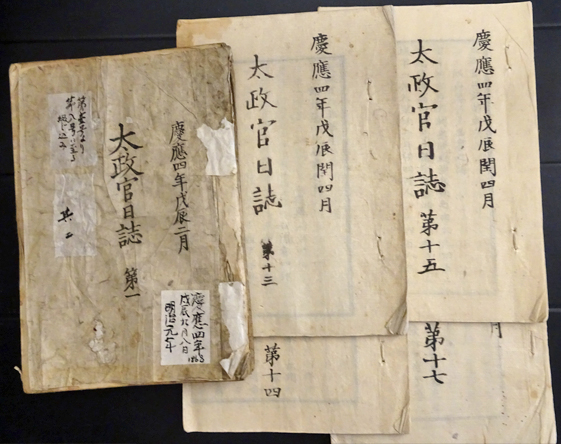 慶應四年戊辰二月
太政官日誌
第一
其二
慶應四年
戊辰九月八日
明治元年
慶應四年戊辰閏四月
太政官日誌
第十三
第十四
慶應四年戊辰閏四月
太政官日誌
第十五
月
第十七